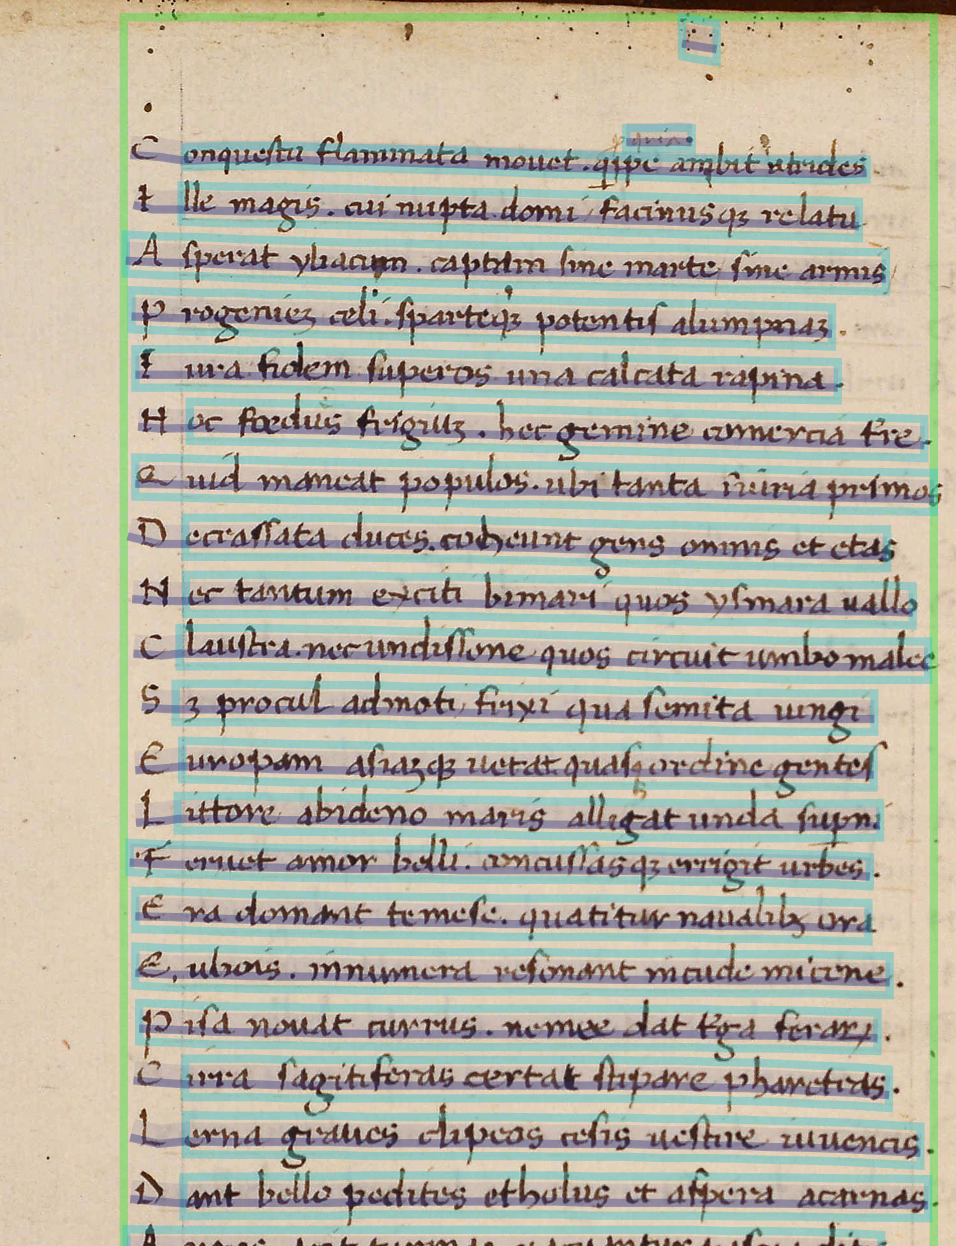 quia.
Conquestu flammata mouet . qipe ambit atrides
Ille magis . cui nupta domi facinusqꝫ relatu
Asperat yliacum . captam sine marte sine armis
Progenieꝫ celi . sparteqꝫ potentis alumpnaꝫ .
Iura fidem superos una calcata rapina .
Hoc fœdus frigiuꝫ . hec gemine comercia tre .
Quid maneat populos . ubi tanta iniuria primos
Decrassata duces . coheunt gens omnis et etas
Nec tantum exciti bimari quos ysmara uallo
Claustra . nec undissone quos circuit umbo malee
Sꝫ procul admoti frixi qua semita iungi
Europam asiaꝫqꝫ uetat . quasqꝫ ordine gentes
Littore abideno maris alligat unda supn .
Feruet amor belli . concussasqꝫ errigit urbes .
Era domant temese . quatitur naualibꝫ ora
Eubois . innumera resonant incude micene .
Pisa nouat currus . nemee dat tga feraꝝ .
Cirra sagitiferas certat stipare pharetras .
Lerna graues clipeos cesis uestire iuuencis .
Dant bello pedites etholus et aspera acarnas .